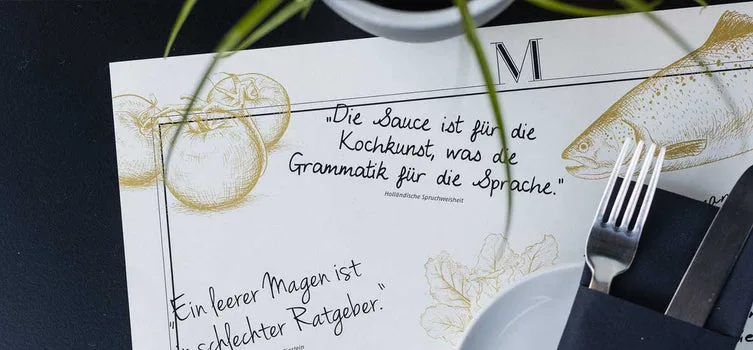 M
"Die Sauce ist für die
Kochkunst, was die
Grammatik für die Sprache."
Holländische Spruchweisheit
"Ein leerer Magen ist
schlechter Ratgeber."